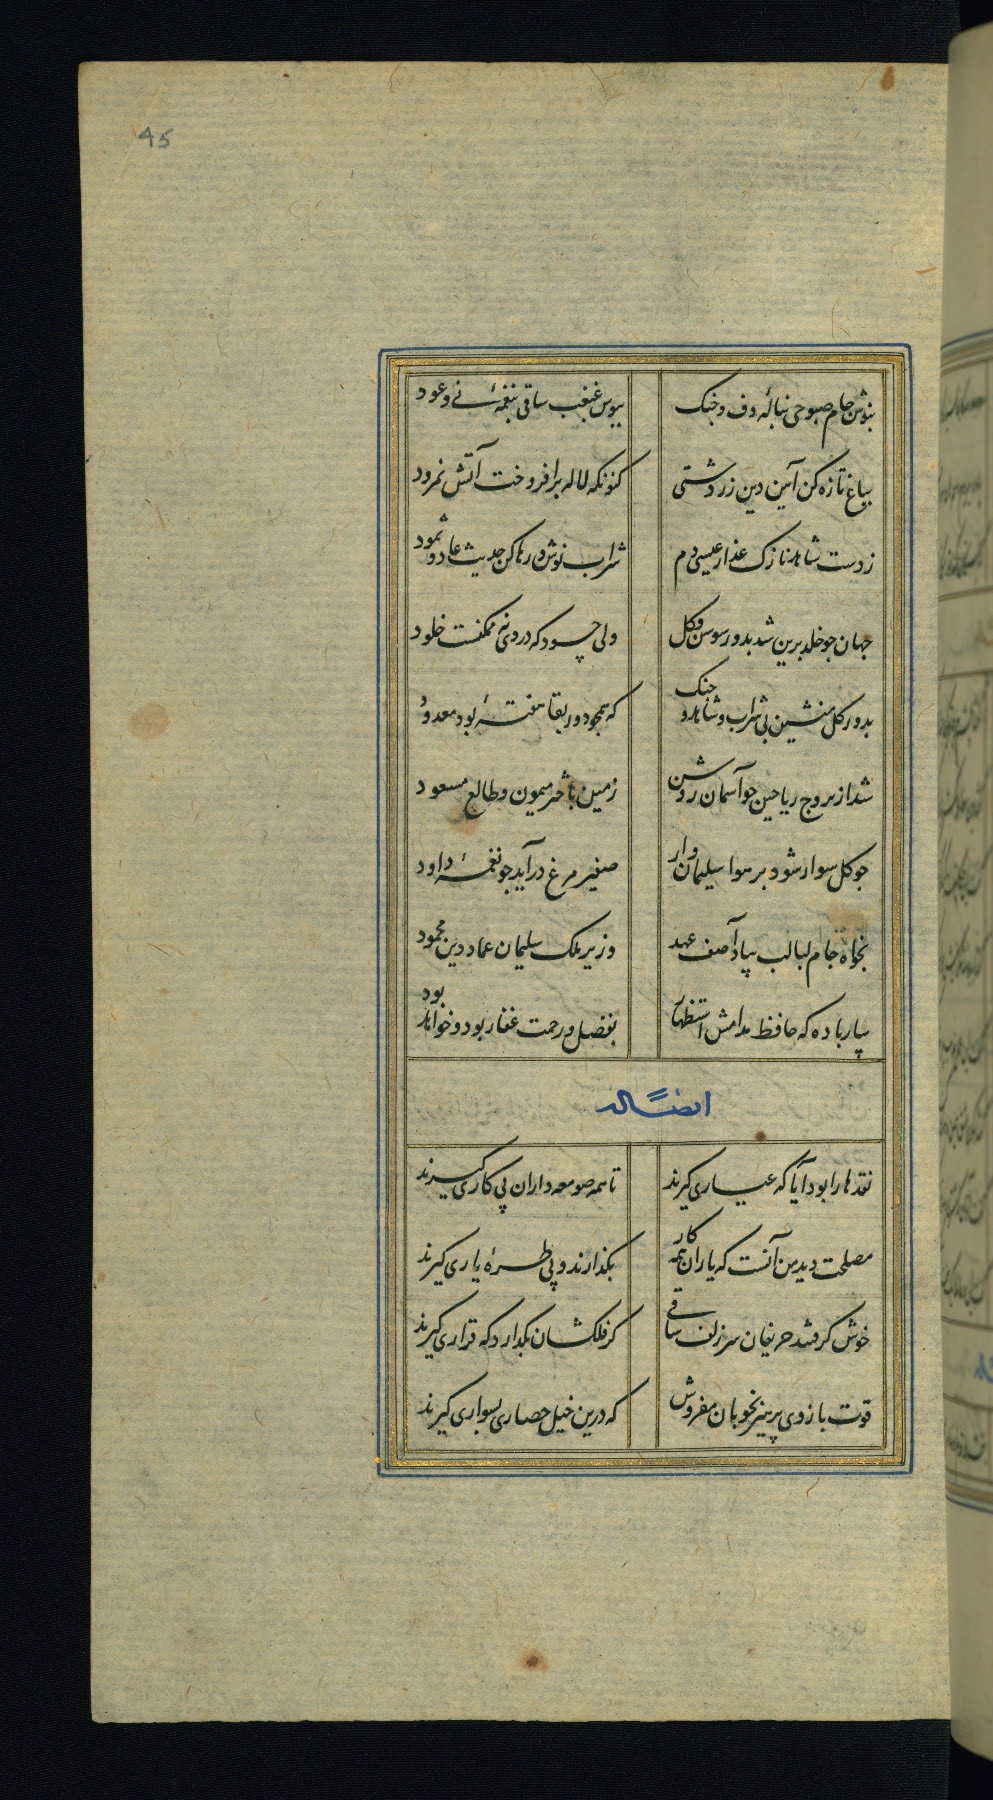 45
بنوش جام صبوحی بنالهٔ دف و چنک
ببوس غبغب ساقی بنغمهٔ نی و عود
بباغ تازه کن آیین دین زردشتی
کنونکه لاله برافروخت آتش نمرود
زدست شاهد نازک عذار عیسی دم
شراب نوش و رها کن حدیث عاد و ثمود
جهان چو خلد برین شد بدور سوسن و کل
ولی چه سود که در وی نه ممکنست خلود
بدور کل منشین بی شراب و شاهد و چنک
که همچو دور بقا هفتهٔ بود معدود
شد از بروج ریاحین چو آسمان روشن
زمین باختر میمون و طالع مسعود
چو کل سوار شود بر هوا سلیمان وار
صفیر مرغ درآید چو نغمهٔ داود
بخواه جام لبالب بیاد آصف عهد
وزیر ملک سلیمان عماد دین محمود
بیار باده که حافظ مدامش استظهار
بفضل و رحمت غفار بود و خواهد بود
ایضاً له
نقدها را بود آیا که عیاری کیرند
تا همه صومعه داران پی کاری کیرند
مصلحت دید من آنست که یاران همه کار
بکذارند و پی طرهٔ یاری کیرند
خوش کرفتند حریفان سر زلف ساقی
کر فلکشان بکذارد که قراری کیرند
قوت بازوی پرهیز بخوبان مفروش
که درین خیل حصاری بسواری کیرند